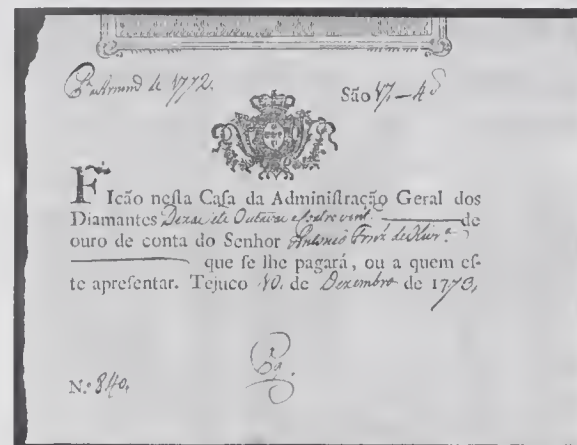 de 1772. São 17,-4
Ficão nesta Casa da Administração Geral dos
Diamantes Dezasete Outavas e quatro vint. de
ouro de conta do Senhor Antonio
que se lhe pagará, ou a quem es-
te apresentar. Tejuco 10. de Dezembro de 1773,
N.º 840,